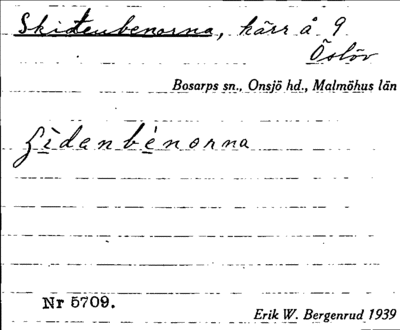 Skitenbenorna, kärr å 9
Öslöv
Bosarps sn., Onsjö hd., Malmöhus län
Nr 5709.
Erik W. Bergenrud 1939